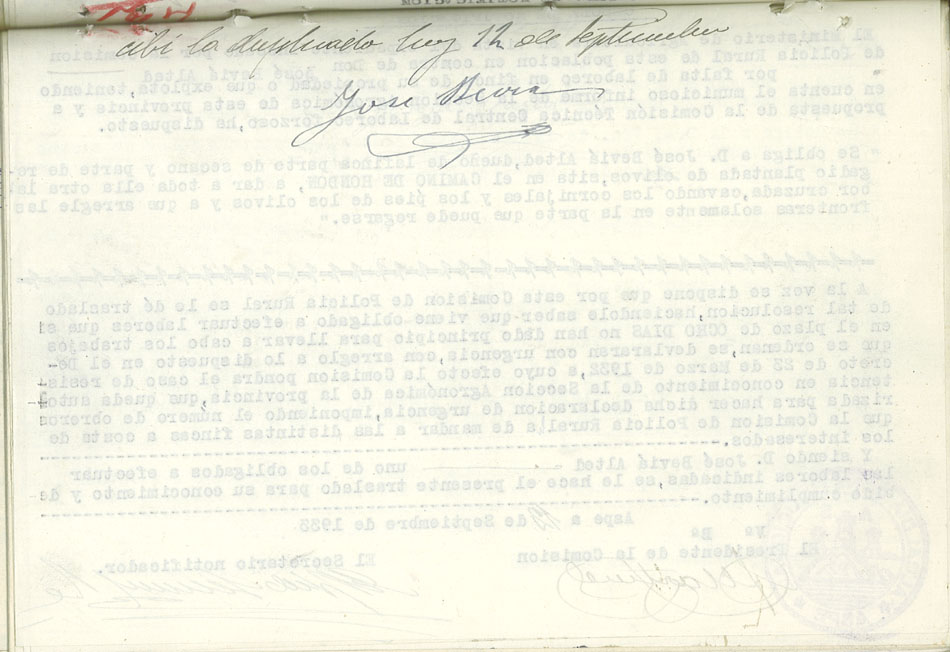 cibí la duplicado hoy 12 de septiembre
José Beviá
El Ministerio de
de Policia Rural de esta poblacion en contra de Don José Beviá Alted
por falta de labores en fincas de su propiedad o que explota, teniendo
en cuenta el municioso informe de la Seccion Agronómica de esta provincia y a
propuesta de la Comisión Técnica Central de laboreo forzoso, ha dispuesto.
" Se obliga a D. José Beviá Alted, dueño de la finca parte de secano y parte de re-
gadio plantada de olivos, sita en el CAMINO DE HONDON, a dar a toda ella otra la-
bor cruzada, cavando los cornijales y los pies de los olivos y a que arregle las
fronteras solamente en la parte que puede regarse."
A la vez se dispone que por esta Comision de Policia Rural se le dé traslado
de tal resolucion, haciendole saber que viene obligado a efectuar labores que si
en el plazo de OCHO DIAS no han dado principio para llevar a cabo los trabajos
que se ordenan, se declararen con urgencia, con arreglo a lo dispuesto en el De-
creto de 23 de Marzo de 1932, a cuyo efecto la Comision pondra el caso de resis-
tencia en conocimiento de la Seccion Agronómica de la provincia, que queda auto-
rizada para hacer dicha declaracion de urgencia, imponiendo el número de obreros
que la Comision de Policia Rural, a de mandar a las distintas fincas a costa de
los interesados.
Y siendo D. José Beviá Alted uno de los obligados a efectuar
las labores indicadas, se le hace el presente traslado para su conocimiento y de-
bido cumplimiento.
Aspe a de Septiembre de 1933
Vº Bº
El Presidente de la Comision El Secretario notificador.